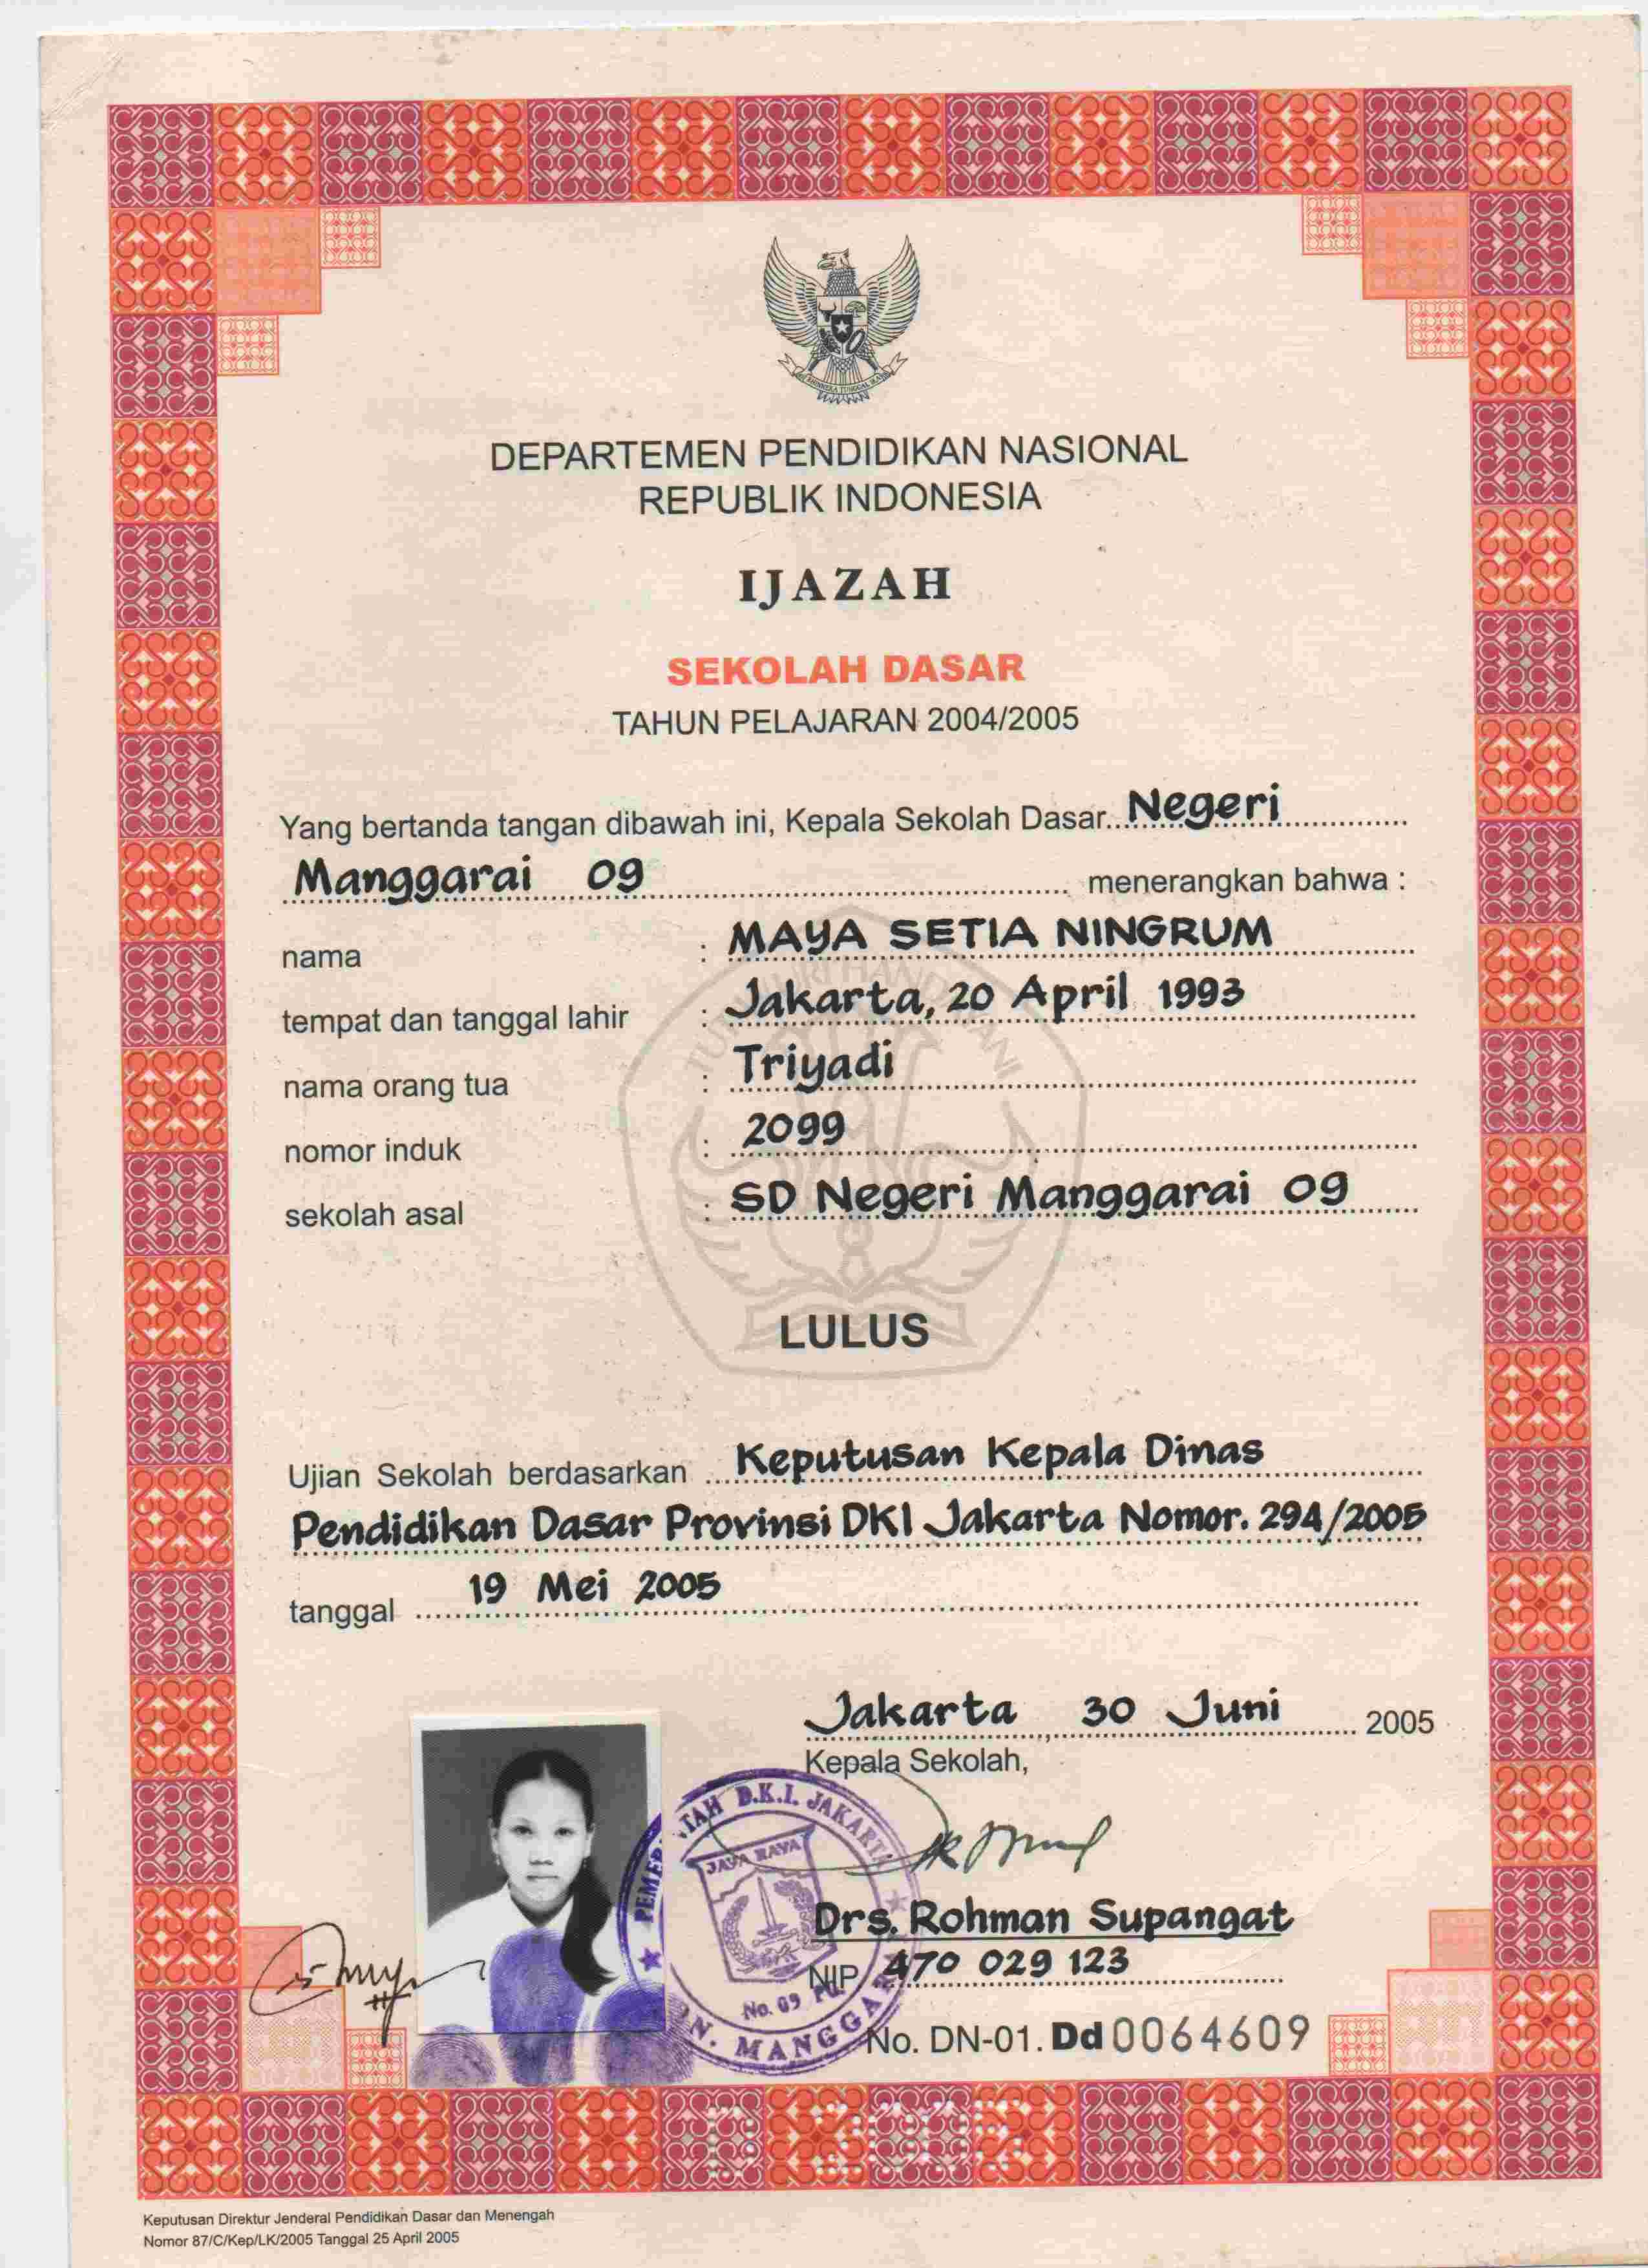 BHINNEKA TUNGGAL IKA
DEPARTEMEN PENDIDIKAN NASIONAL
REPUBLIK INDONESIA
IJAZAH
SEKOLAH DASAR
TAHUN PELAJARAN 2004/2005
Yang bertanda tangan dibawah ini, Kepala Sekolah Dasar Negeri
Manggarai 09 menerangkan bahwa :
nama : MAYA SETIA NINGRUM
tempat dan tanggal lahir : Jakarta, 20 April 1993
nama orang tua : Triyadi
nomor induk : 2099
sekolah asal : SD Negeri Manggarai 09
TUT WURI HANDAYANI
LULUS
Ujian Sekolah berdasarkan Keputusan Kepala Dinas
Pendidikan Dasar Provinsi DKI Jakarta Nomor. 294/2005
tanggal 19 Mei 2005
Jakarta, 30 Juni 2005
Kepala Sekolah,
D.K.I. JAKARTA
JAYA RAYA
Drs. Rohman Supangat
NIP 470 029 123
No. 09
No. DN-01. Dd 0064609
Keputusan Direktur Jenderal Pendidikan Dasar dan Menengah
Nomor 87/C/Kep/LK/2005 Tanggal 25 April 2005